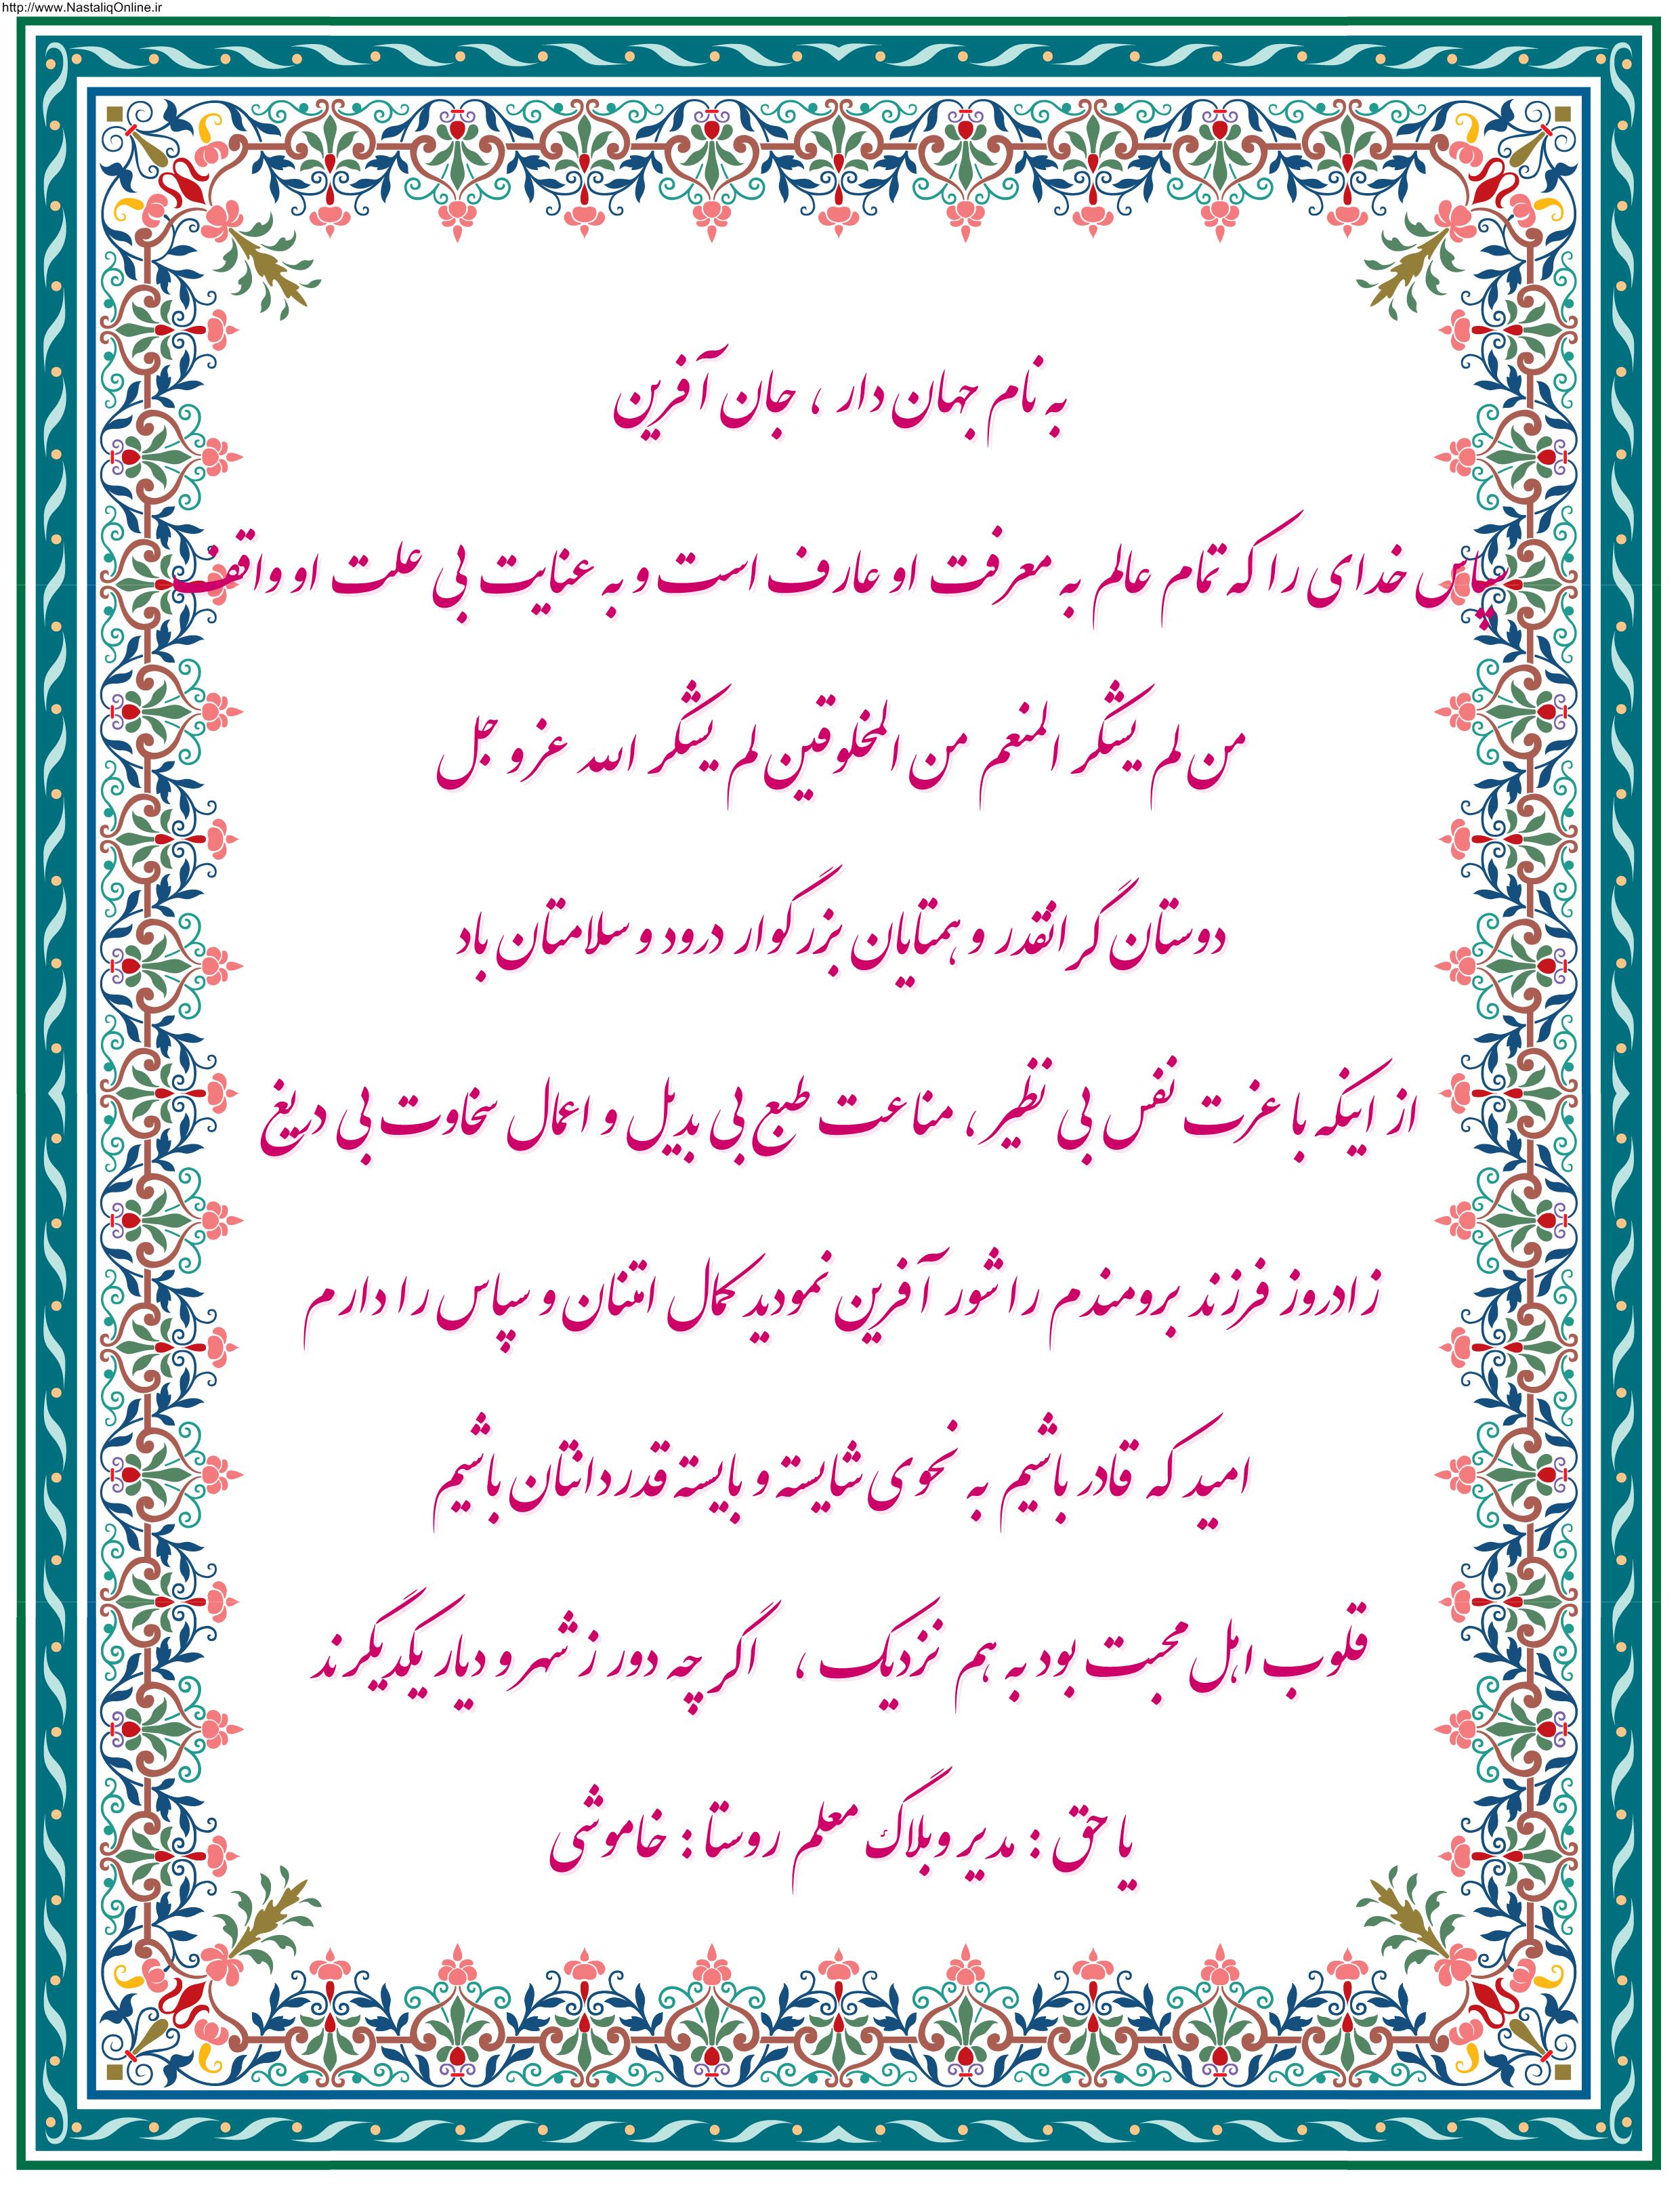 http://www.NastaliqOnline.ir
به نام جهان دار ، جان آفرین
سپاس خدای را که تمام عالم به معرفت او عارف است و به عنایت بی علت او واقف
من لم یشکر المنعم من المخلوقین لم یشکر الله عز و جل
دوستان گرانقدر و همتایان بزرگوار درود و سلامتان باد
از اینکه با عزت نفس بی نظیر ، مناعت طبع بی بدیل و اعمال سخاوت بی دریغ
زادروز فرزند برومندم را شور آفرین نمودید کمال امتنان و سپاس را دارم
امید که قادر باشیم به نحوی شایسته و بایسته قدردانتان باشیم
قلوب اهل محبت بود به هم نزدیک ، اگر چه دور ز شهر و دیار یکدیگرند
یا حق : مدیر وبلاگ معلم روستا : خاموشی